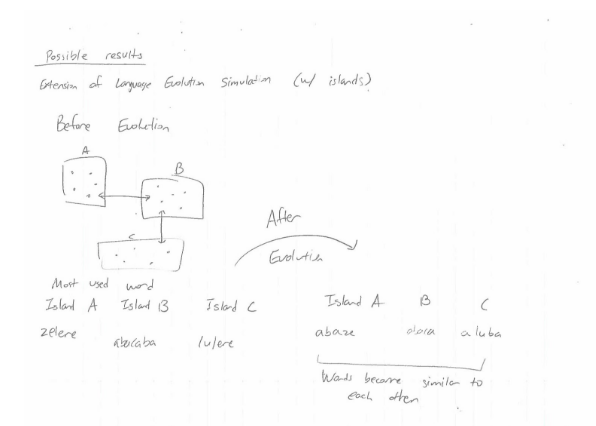 Possible results
Extension of Language Evolution Simulation (w/ islands)
Before Evolution
A
B
C
After
Evolution
Most used word
Island A Island B Island C
zelene lulere
Island A B C
abaze aluba
Words become similar to
each other